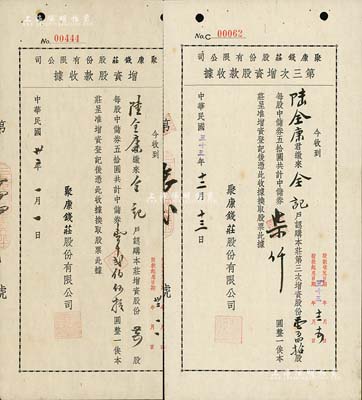 No. 00444
聚康錢莊股份有限公司
增資股款收據
今收到
陸全康君繳來全記戶認購本莊增資股份
股
每股中儲券五拾圓共計中儲券
圓整一俟本
莊呈准增資登記後憑此收據換取股票此據
聚康錢莊股份有限公司
中華民國卅三年一月一日
第
號
No. C 00062
聚康錢莊股份有限公司
第三次增資股款收據
今收到
陸全康君繳來全記戶認購本莊第三次增資股份
股
每股中儲券五拾圓共計中儲券柒仟
圓整一俟本
莊呈准增資登記後憑此收據換取股票此據
聚康錢莊股份有限公司
中華民國三十三年十二月十三日